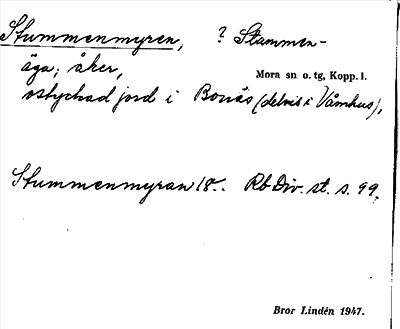 Stummenmyren, ? Stammen-
äga; åker,
Mora sn o. tg, Kopp. l.
ostyckad jord i Bonäs (delvis i Våmhus),
Stummenmyran 18.. Rb Div. st. s. 99.
Bror Lindén 1947.